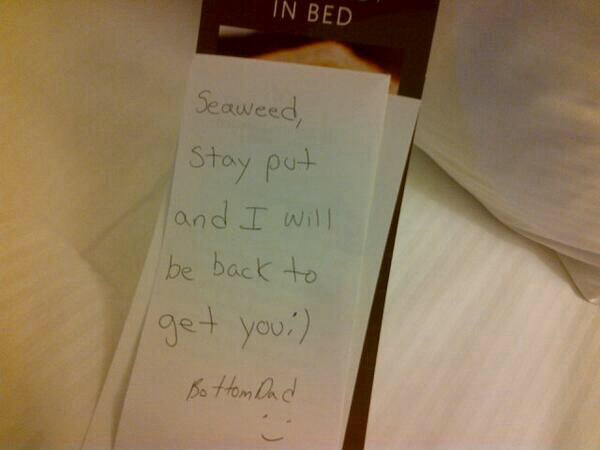 IN BED
Seaweed,
Stay put
and I will
be back to
get you:)
BottomDad
:)